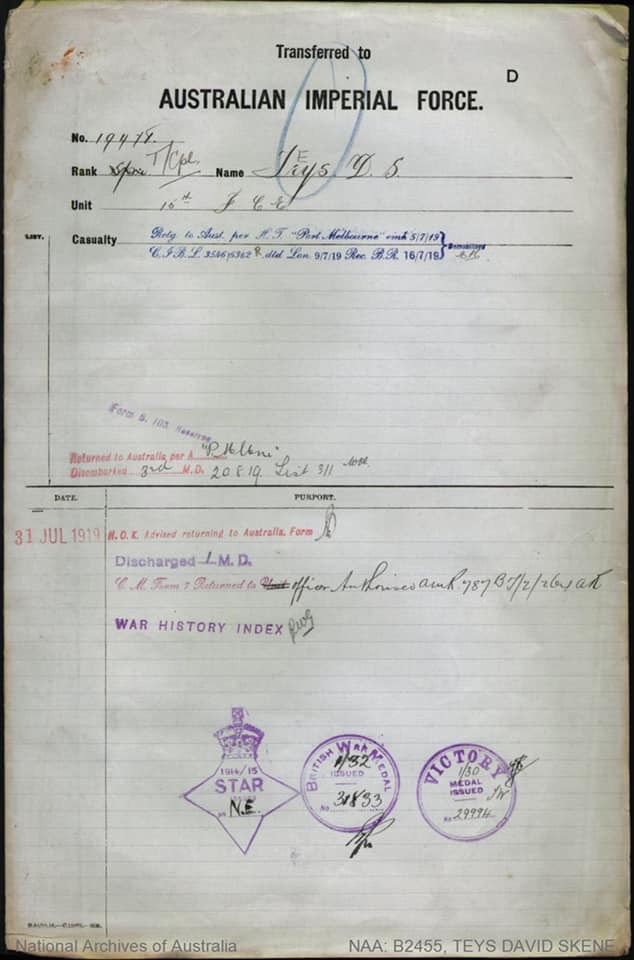 Transferred to
D
AUSTRALIAN IMPERIAL FORCE.
No. 19471.
Rank Spr. T/Cpl. Name TEys D. S.
Unit 15th F C E
LIST.
Casualty Retg. to Aust. per H. T. "Port Melbourne" emk 5/7/19
C.I.B.L. dtd Lon. 9/7/19 Rec. B.R. 16/7/19
Form B. 103 Received
Returned to Australia per "P. Melbne"
Disembarked 3rd M.D. 20.8.19. List 311
DATE.
PURPORT.
31 JUL 1919 N.O.K. Advised returning to Australia. Form
Discharged 1 M.D.
Returned to Unit officer Authorised
WAR HISTORY INDEX
1914/15
STAR
ISSUED
No N.E.
BRITISH WAR MEDAL
1/32
ISSUED
No 31833
VICTORY
1/30
MEDAL
ISSUED
No 29994
National Archives of Australia
NAA: B2455, TEYS DAVID SKENE